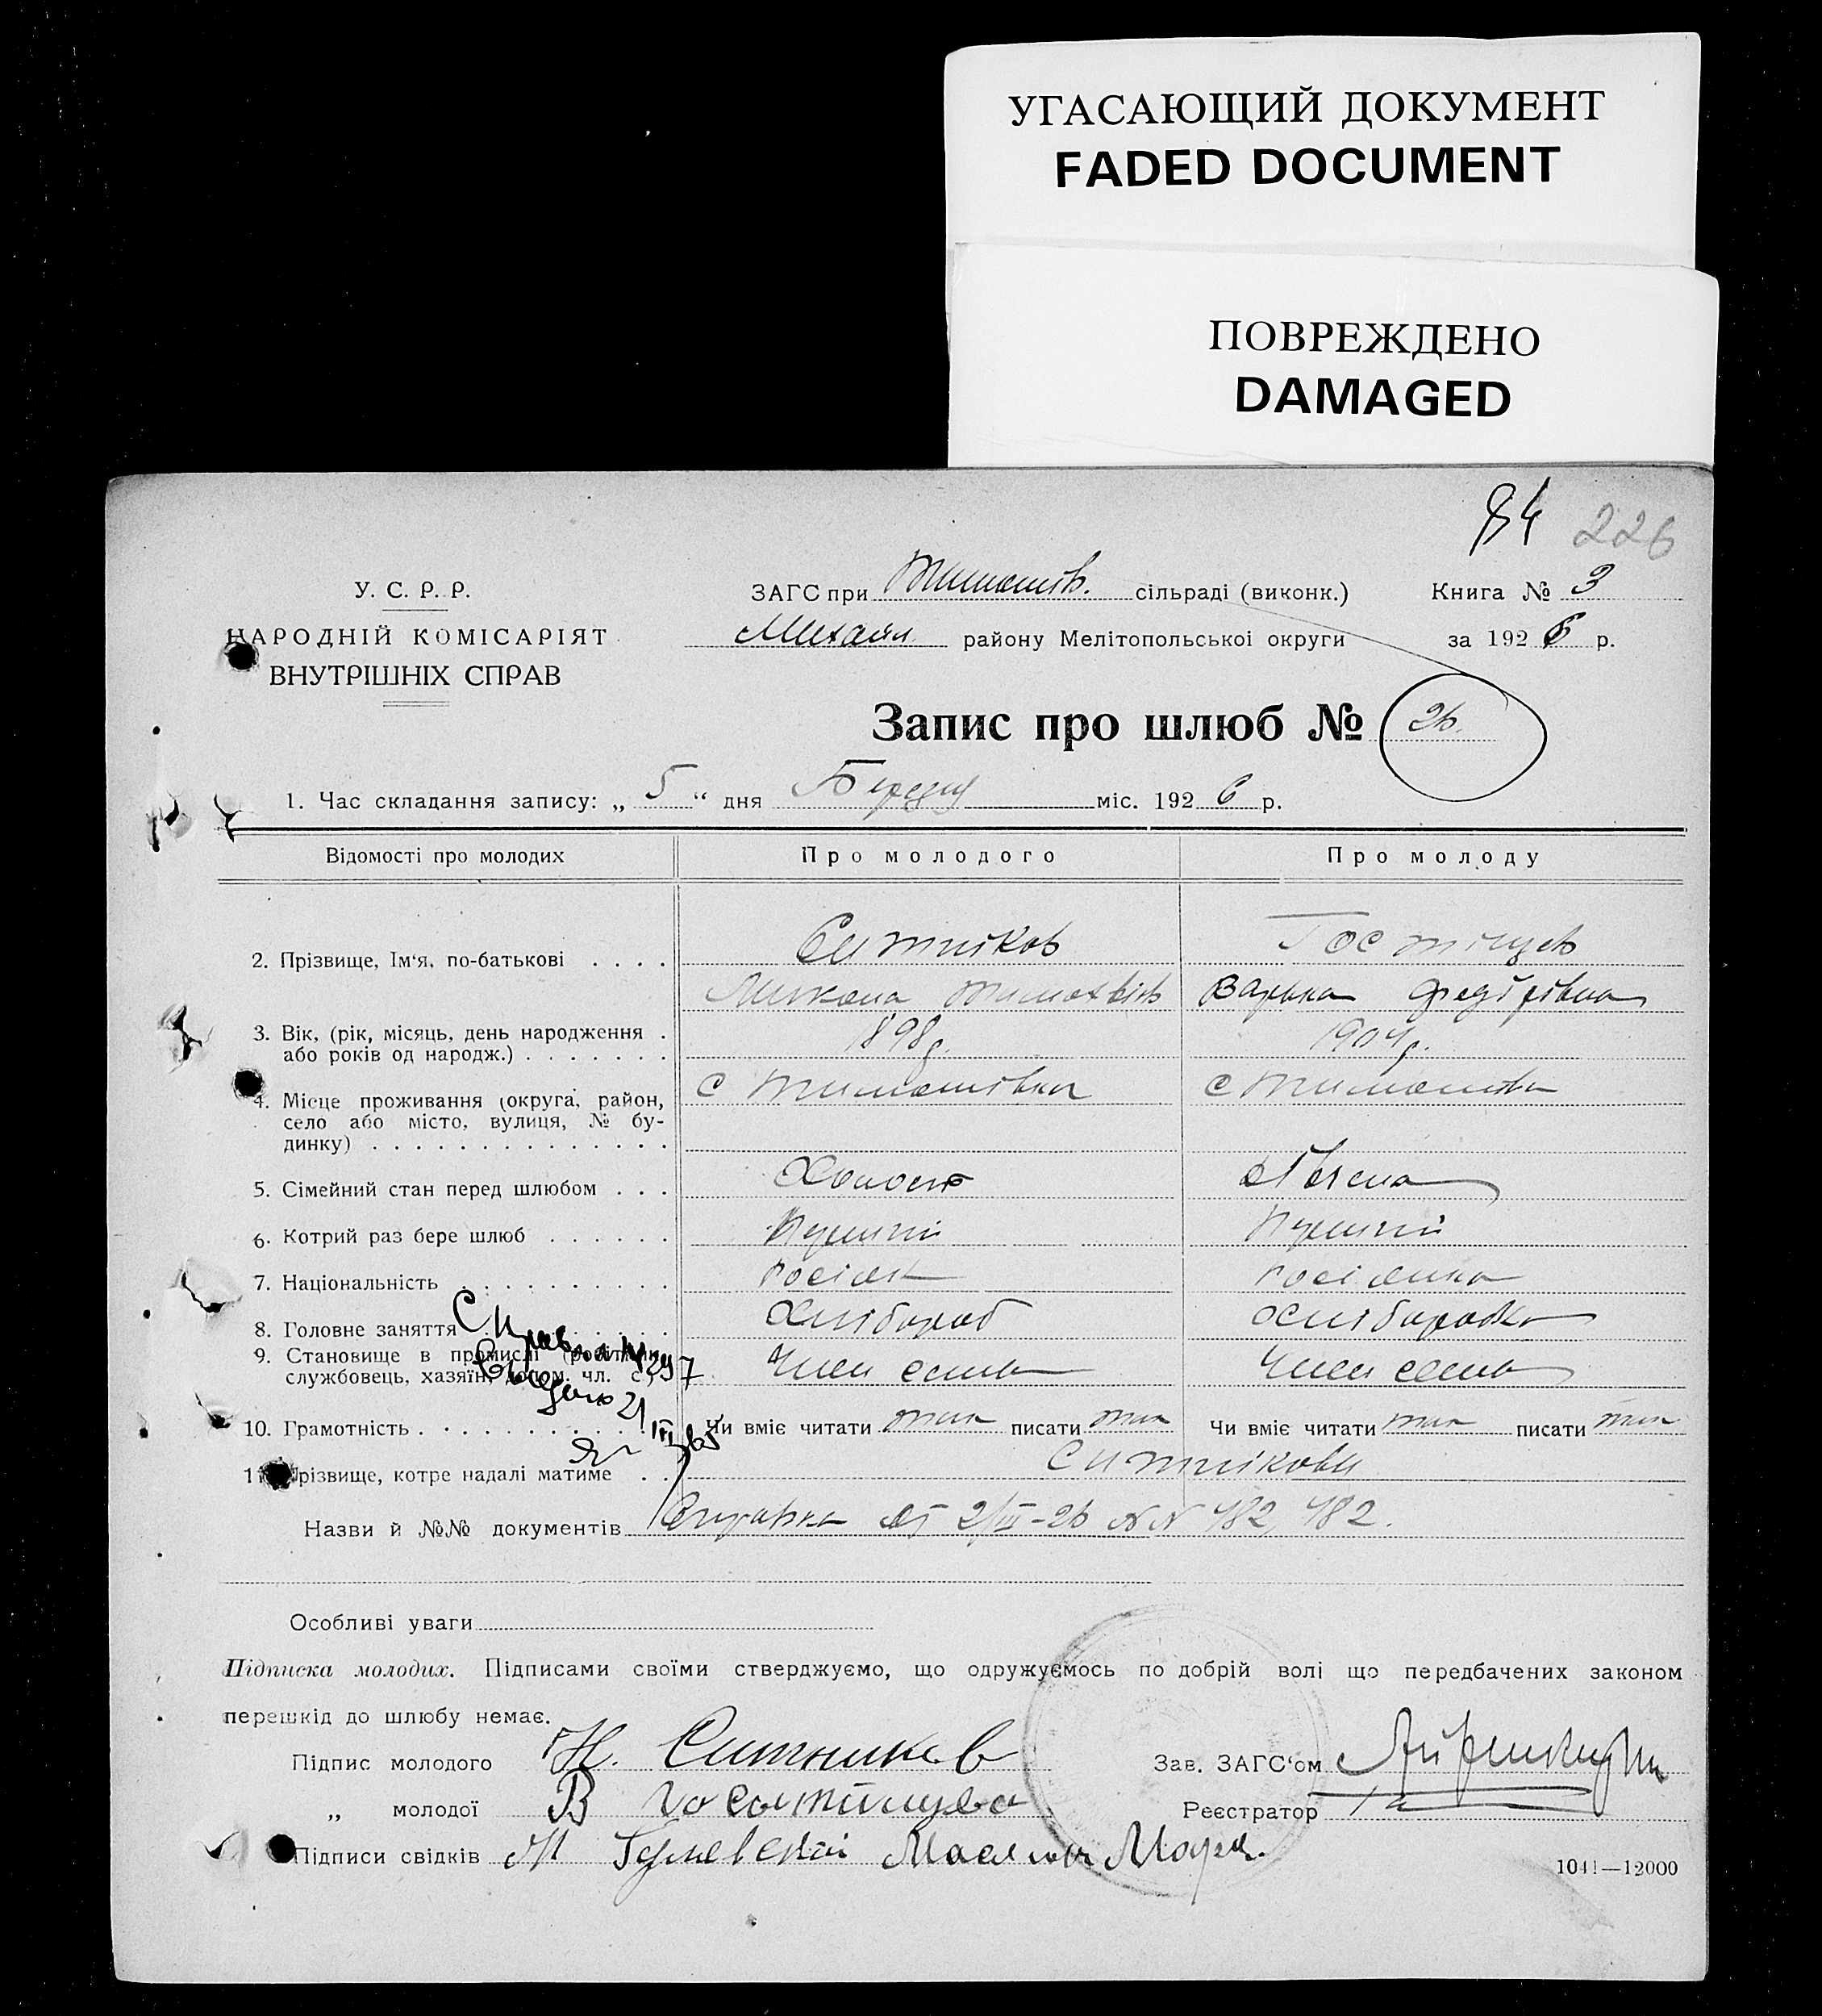 УГАСАЮЩИЙ ДОКУМЕНТ
FADED DOCUMENT
ПОВРЕЖДЕНО
DAMAGED
84 226
У. С. Р. Р.
НАРОДНІЙ КОМІСАРІЯТ
ВНУТРІШНІХ СПРАВ
ЗАГС при Тимошів. сільраді (виконк.) Книга № 3
Михайл. району Мелітопольської округи за 1926 р.
Запис про шлюб № 26.
1. Час складання запису: „ 5 “ дня Березня міс. 1926 р.
Відомості про молодих Про молодого Про молоду
2. Прізвище, Ім‘я, по-батькові . . . . Ситніков Гостіщев
Микола Тимохвів Варька Федірівна
3. Вік, (рік, місяць, день народження . 1898 р. 1904 р.
або років од народж.) . . . . . . .
4. Місце проживання (округа, район, с Тимошівка с Тимошівка
село або місто, вулиця, № бу-
динку) . . . . . . . . . . . . . .
5. Сімейний стан перед шлюбом . . . Холост
6. Котрий раз бере шлюб . . . . . . Перший Перший
7. Національність . . . . . . . . . . Росіян Росіянка
8. Головне заняття . . . . . . Хлібороб Хліборобка
9. Становище в промислі (робітник,
службовець, хазяїн, допом. чл. с.) Член семьи Член семьи
10. Грамотність . . . . . . . . . . Чи вміє читати так писати так Чи вміє читати так писати так
11. Прізвище, котре надалі матиме . . Ситнікови
Назви й №№ документів Справка от 2/III-26 NN 482, 482.
Особливі уваги
Підписка молодих. Підписами своїми стверджуємо, що одружуємось по добрій волі що передбачених законом
перешкід до шлюбу немає.
Підпис молодого Н. Ситников Зав. ЗАГС‘ом
„ молодої В Реєстратор
Підписи свідків
1041—12000